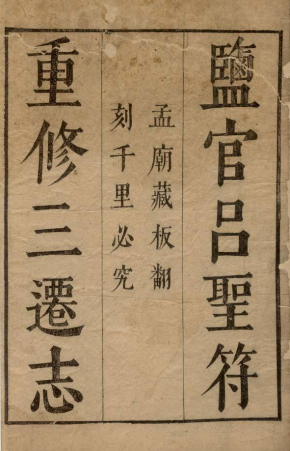 鹽官吕聖符
孟廟藏板翻
刻千里必究
重修三遷志